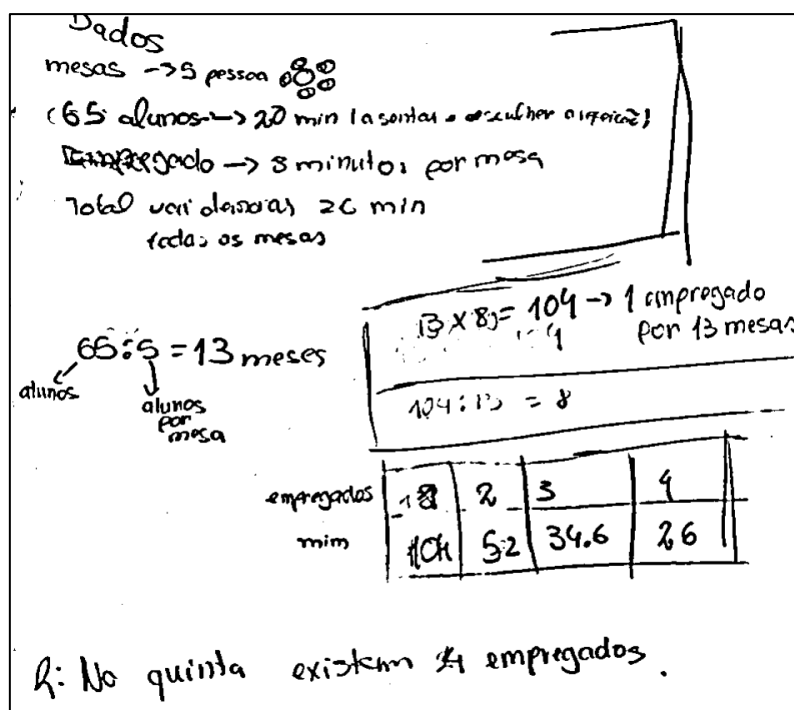 Dados
mesas -> 5 pessoa
(65 alunos -> 20 min (a sentar e escolher a refeição)
Empregado -> 8 minutos por mesa
Total 26 min
todas as mesas
65:5 = 13 meses
alunos
alunos
por
mesa
13 x 8 = 104 -> 1 empregado
por 13 mesas
104:13 = 8
empregados 1 2 3 4
mim 104 52 34.6 26
R: Na quinta existem 4 empregados.